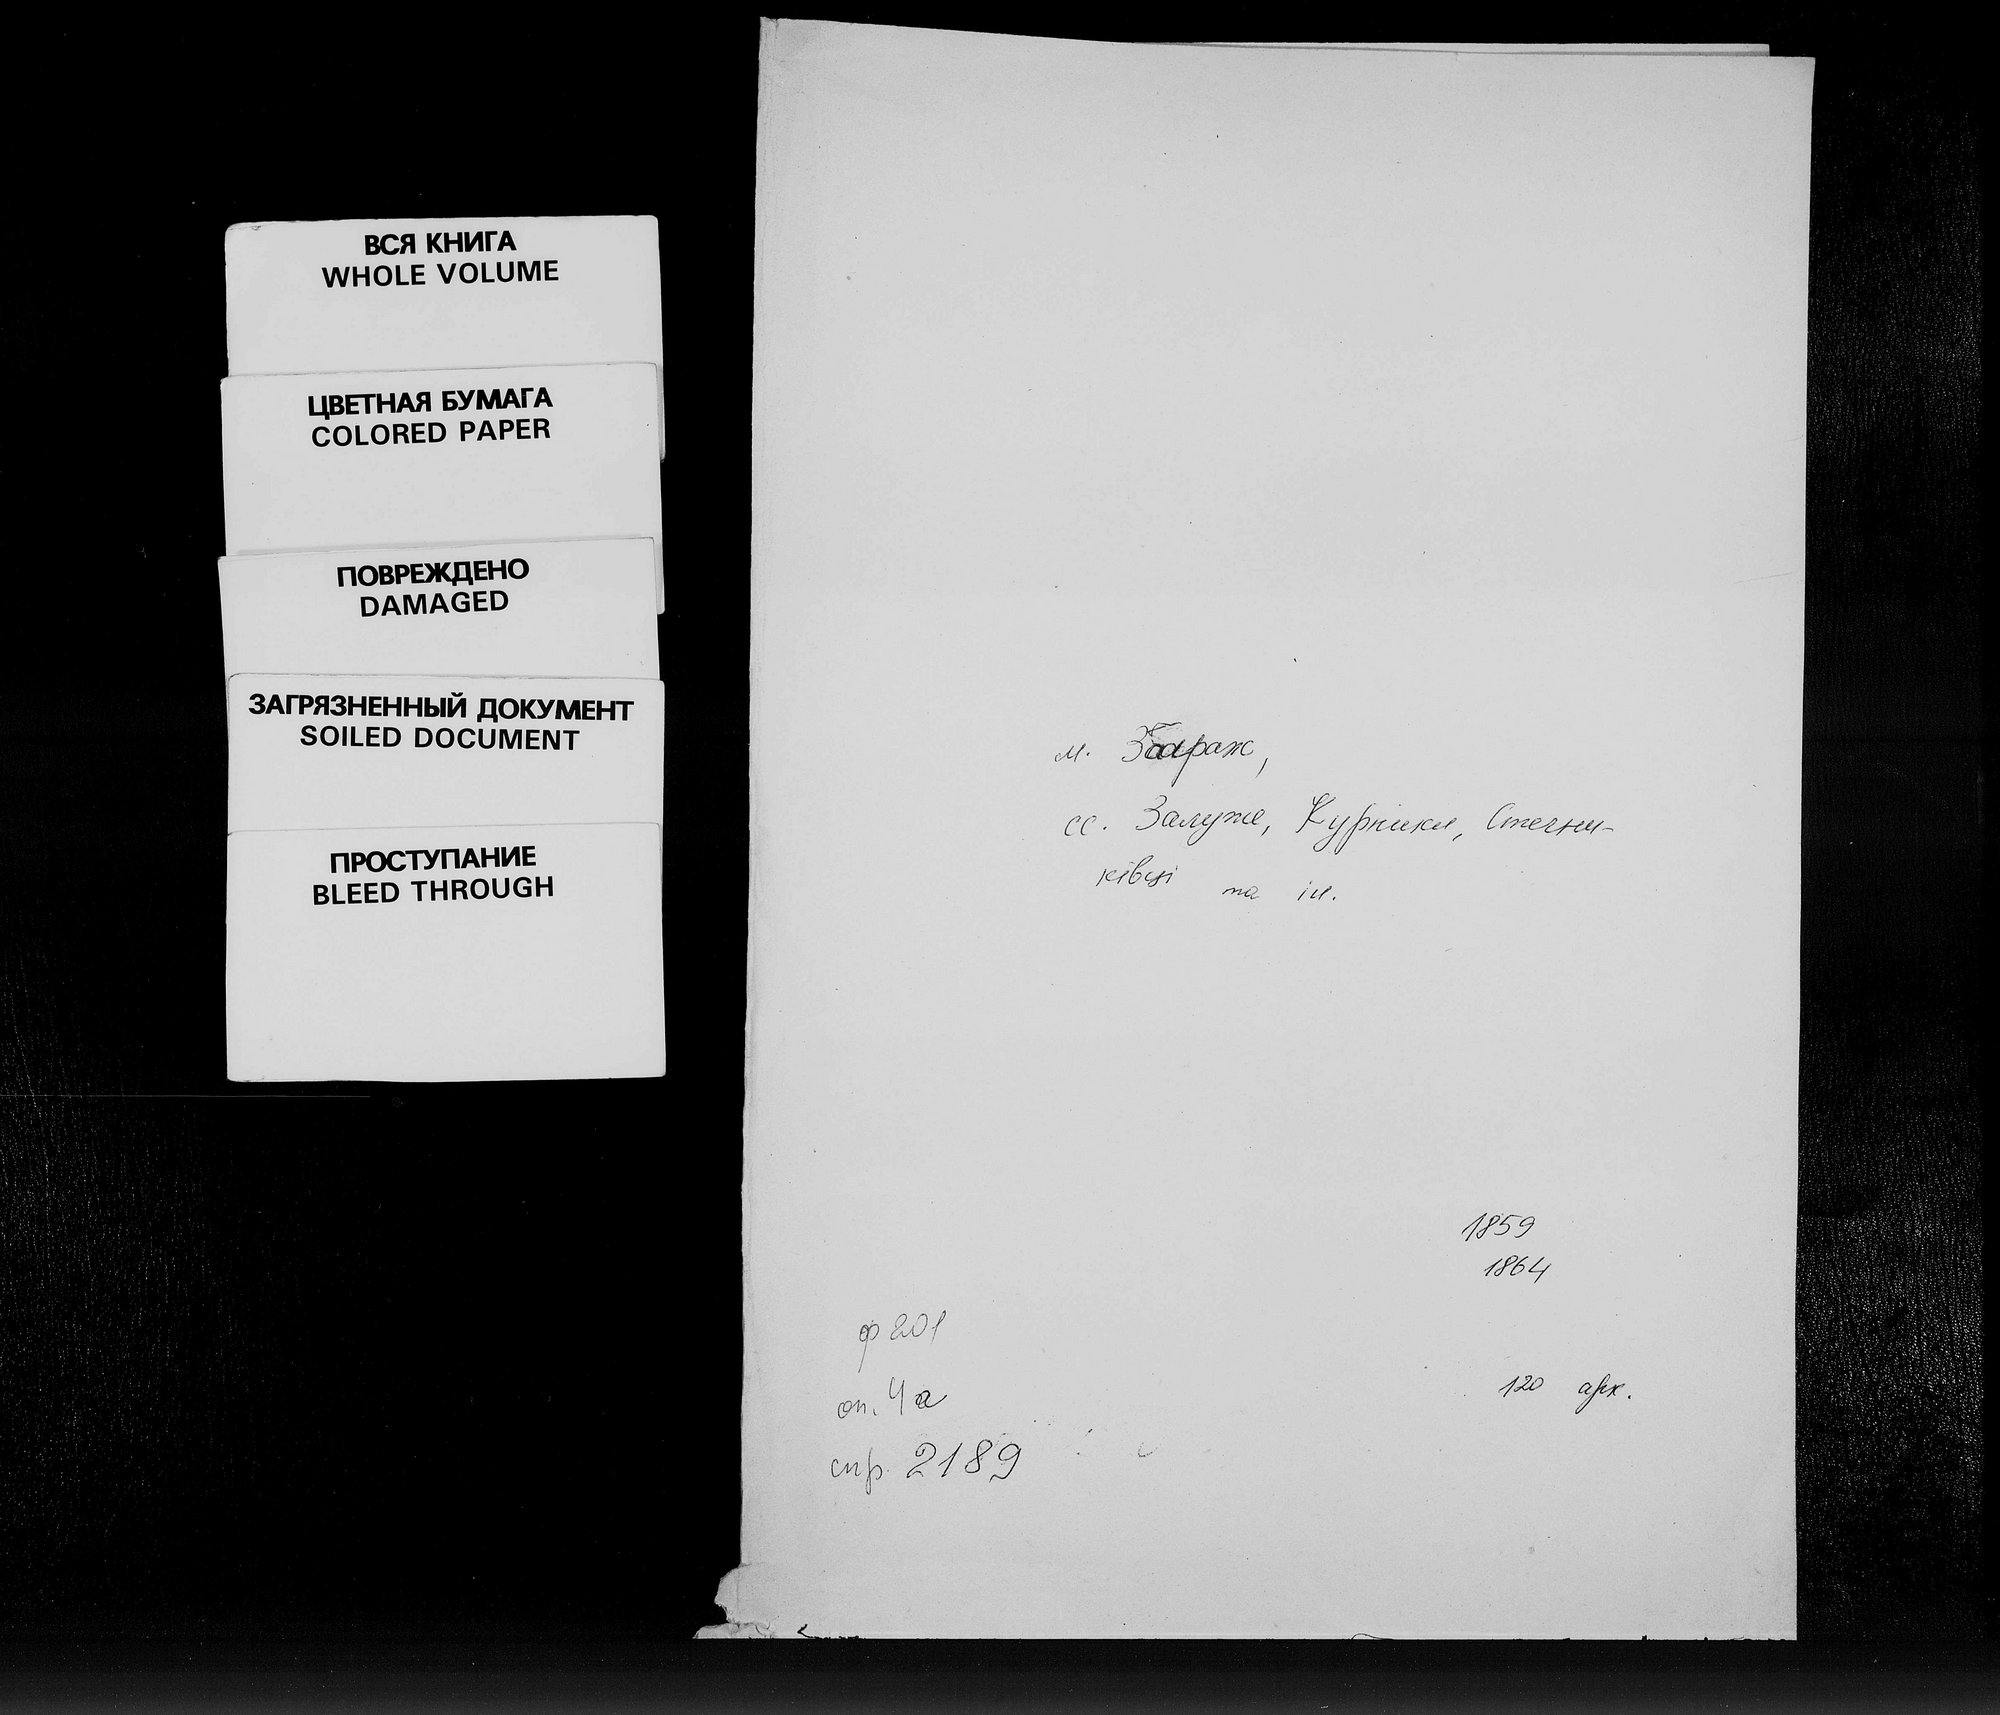 ВСЯ КНИГА
WHOLE VOLUME
ЦВЕТНАЯ БУМАГА
COLORED PAPER
ПОВРЕЖДЕНО
DAMAGED
ЗАГРЯЗНЕННЫЙ ДОКУМЕНТ
SOILED DOCUMENT
ПРОСТУПАНИЕ
BLEED THROUGH
м. Збараж,
сс. Залуже, Курники, Стечни-
ківці та ін.
1859
1864
ф 201
оп. 4а
спр. 2189
120 арк.